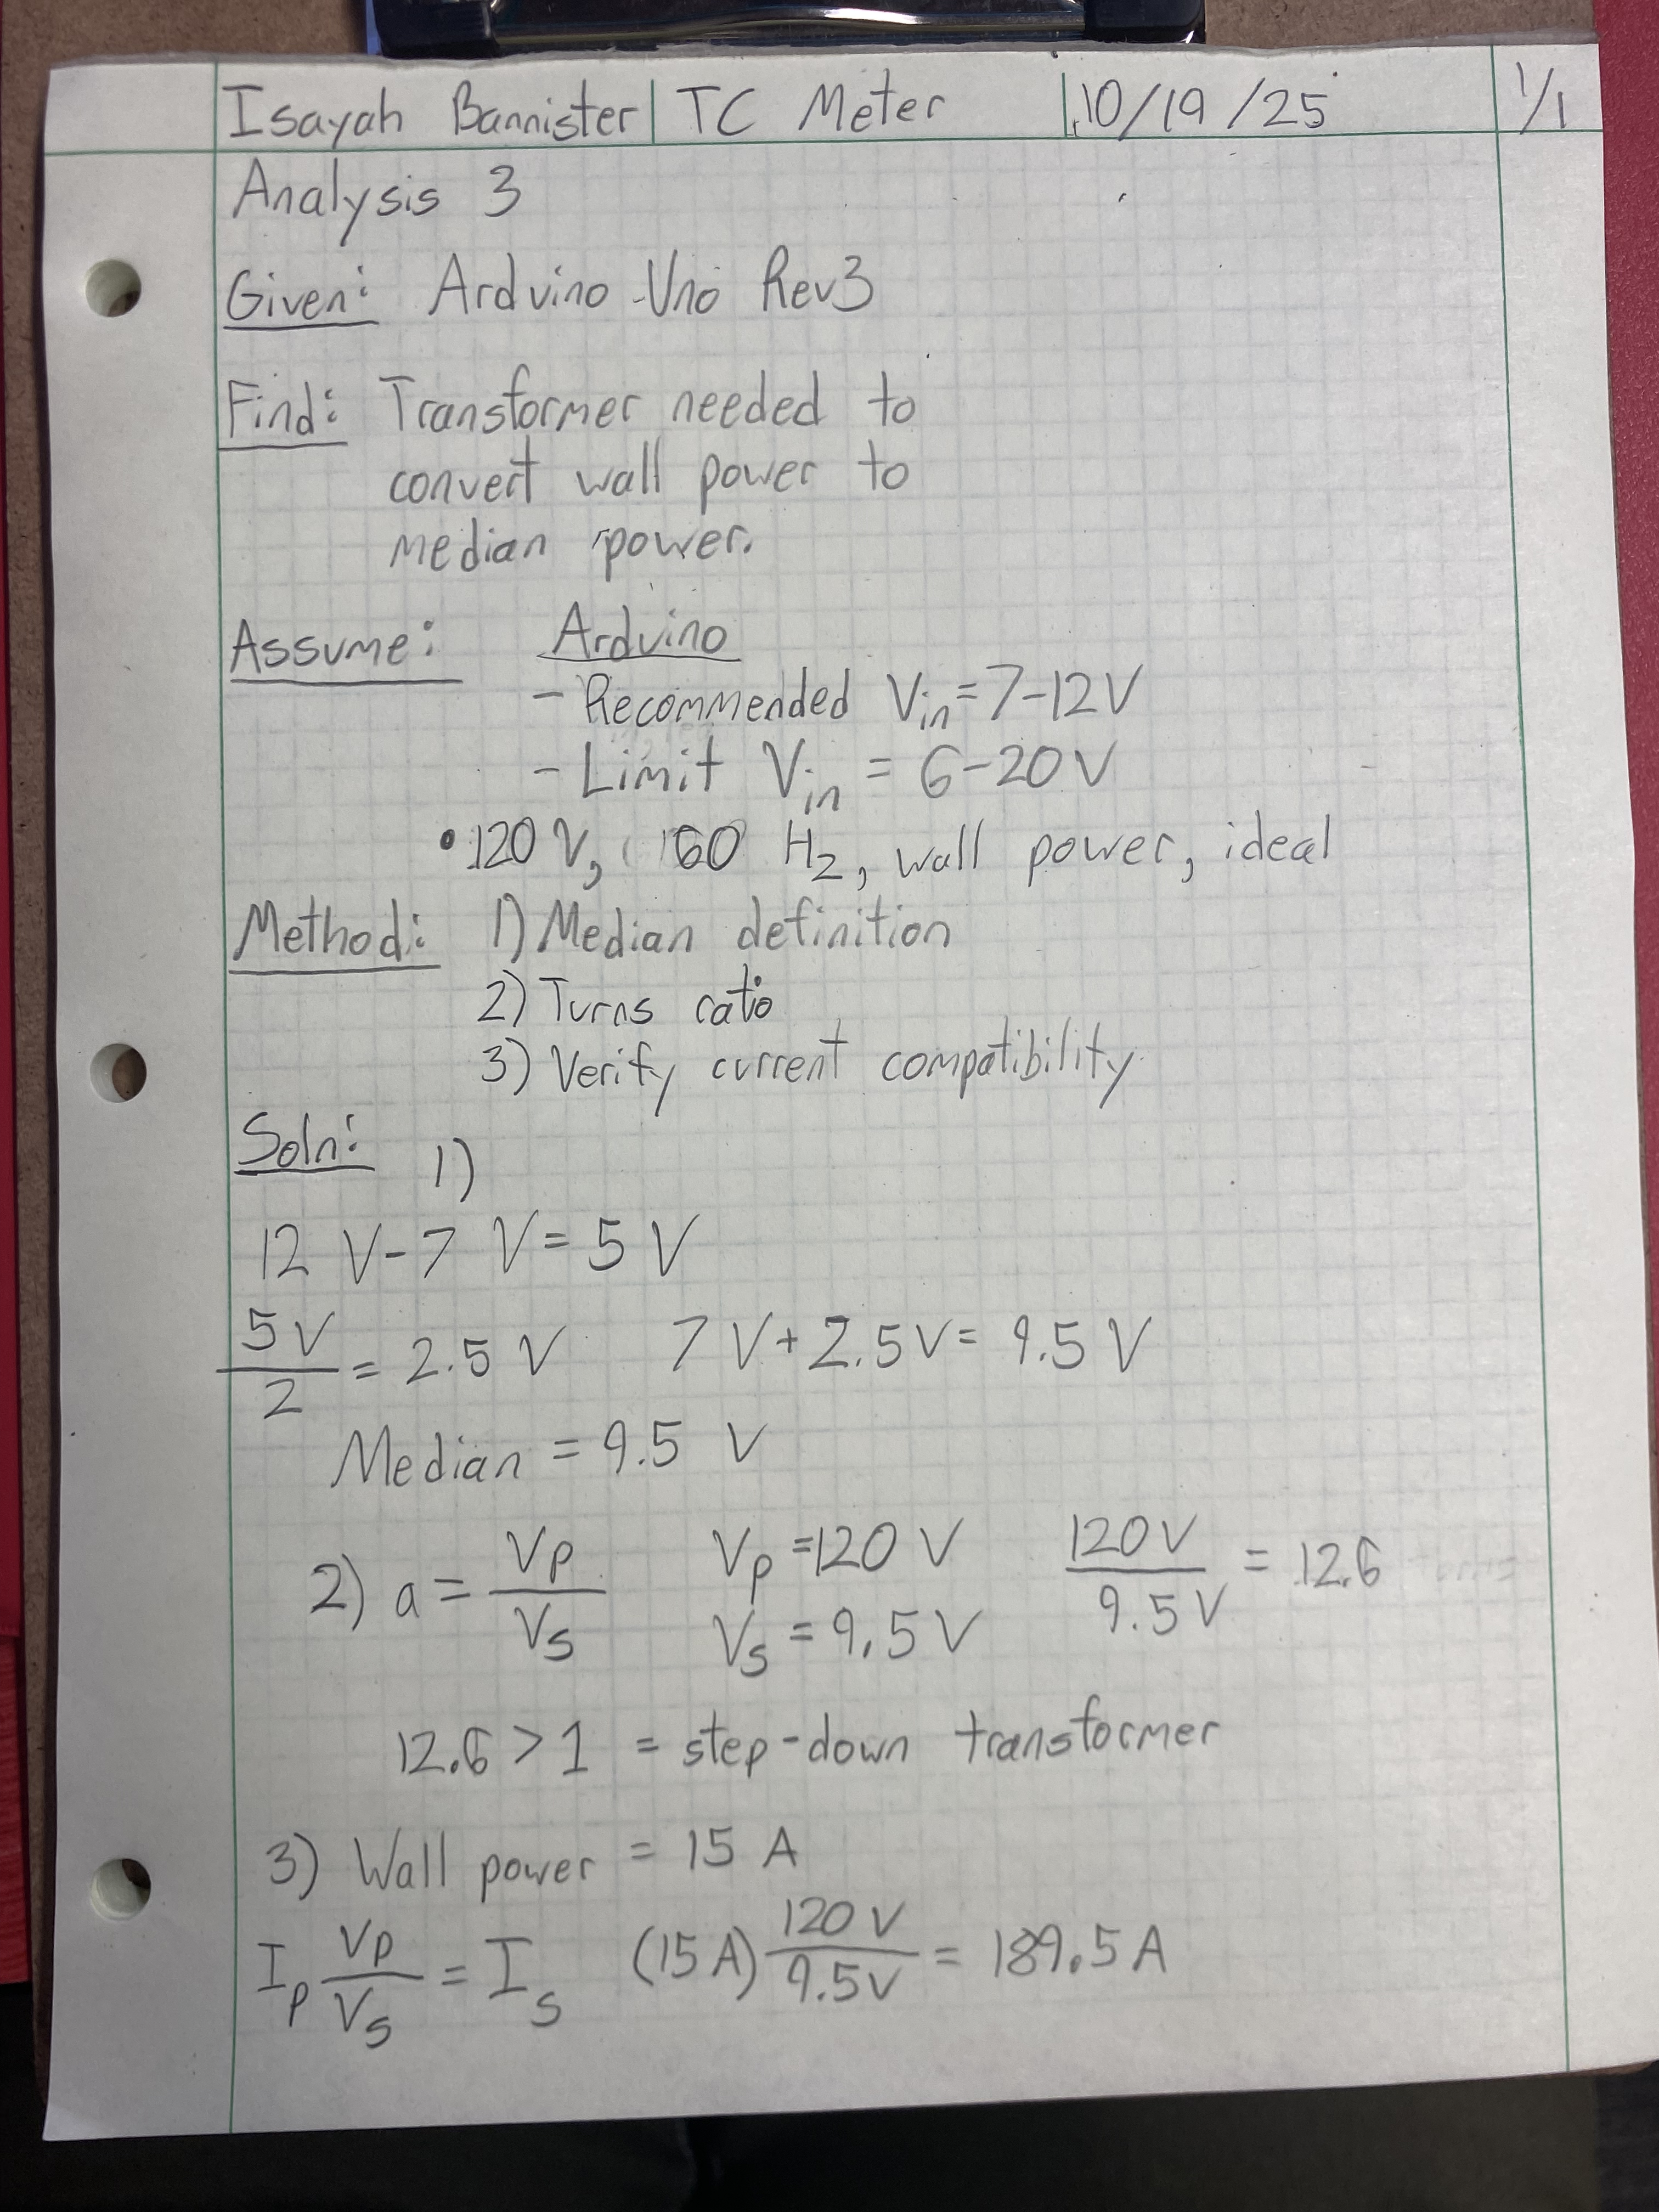 Isayah Bannister | TC Meter | 10/19/25 1/1
Analysis 3
Given: Arduino Uno Rev3
Find: Transformer needed to
convert wall power to
median power.
Assume: Arduino
- Recommended Vin = 7-12V
- Limit Vin = 6-20V
• 120 V, 60 Hz, wall power, ideal
Method: 1) Median definition
2) Turns ratio
3) Verify current compatibility
Soln: 1)
12 V - 7 V = 5 V
5V/2 = 2.5 V 7 V + 2.5V = 9.5 V
Median = 9.5 V
2) a = Vp/Vs Vp = 120 V 120V/9.5V = 12.6
Vs = 9.5V
12.6 > 1 = step-down transformer
3) Wall power = 15 A
Ip Vp/Vs = Is (15A) 120V/9.5V = 189.5 A